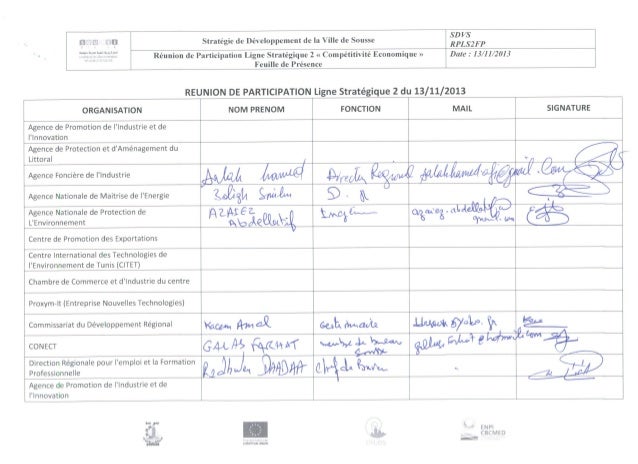 Stratégie de Développement de la Ville de Sousse
SDVS
RPLS2FP
Réunion de Participation Ligne Stratégique 2 « Compétitivité Economique »
Feuille de Présence
Date : 13/11/2013
REUNION DE PARTICIPATION Ligne Stratégique 2 du 13/11/2013
ORGANISATION NOM PRENOM FONCTION MAIL SIGNATURE
Agence de Promotion de l'Industrie et de
l'Innovation
Agence de Protection et d'Aménagement du
Littoral
Agence Foncière de l'Industrie Salah hamed Directeur Regional salahhamed.afi@gmail.com
Agence Nationale de Maitrise de l'Energie D.R
Agence Nationale de Protection de
L'Environnement
AZAIEZ
Abdellatif
Centre de Promotion des Exportations
Centre International des Technologies de
l'Environnement de Tunis (CITET)
Chambre de Commerce et d'Industrie du centre
Proxym-It (Entreprise Nouvelles Technologies)
Commissariat du Développement Régional Kacem Amel Gestionnaire
CONECT GALAS FARHAT membre de bureau
Sousse
Direction Régionale pour l'emploi et la Formation
Professionnelle
Radhwen DAADAA Chef de
Agence de Promotion de l'Industrie et de
l'Innovation
ENPI
CBCMED